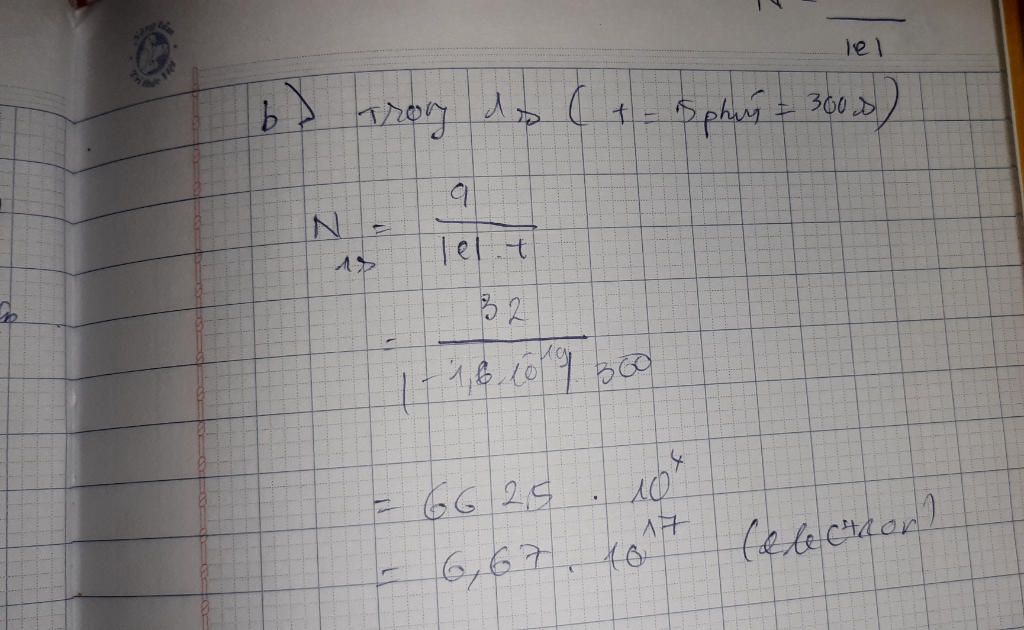 N = ―
|e|
b) trong 1s ( t = 5 phút = 300s)
N 1s = q / |e|.t
= 32 / |-1,6.10^-19|.300
= 6625 . 10^x
= 6,67 . 10^17 (electron)